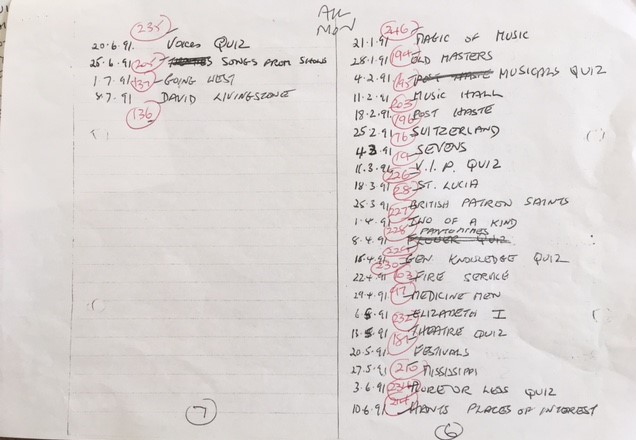 ALL
MON
238
20.6.91 VOICES QUIZ
25.6.91 SONGS FROM SHOWS
1.7.91 137 GOING WEST
8.7.91 DAVID LIVINGSTONE
136
7
246
21.1.91 MAGIC OF MUSIC
28.1.91 194 OLD MASTERS
4.2.91 195 POST HASTE MUSICALS QUIZ
11.2.91 203 MUSIC HALL
18.2.91 196 POST HASTE
25.2.91 76 SWITZERLAND
4.3.91 19 SEVENS
11.3.91 V.I.P. QUIZ
226
18.3.91 28 ST. LUCIA
25.3.91 BRITISH PATRON SAINTS
227
1.4.91 TWO OF A KIND
228 PANTOMIMES
8.4.91 FLOWER QUIZ
16.4.91 GEN KNOWLEDGE QUIZ
230
22.4.91 103 FIRE SERVICE
29.4.91 MEDICINE MEN
6.5.91 232 ELIZABETH I
13.5.91 THEATRE QUIZ
181
20.5.91 FESTIVALS
27.5.91 210 MISSISSIPPI
3.6.91 234 MORE OR LESS QUIZ
10.6.91 HANTS PLACES OF INTEREST
6